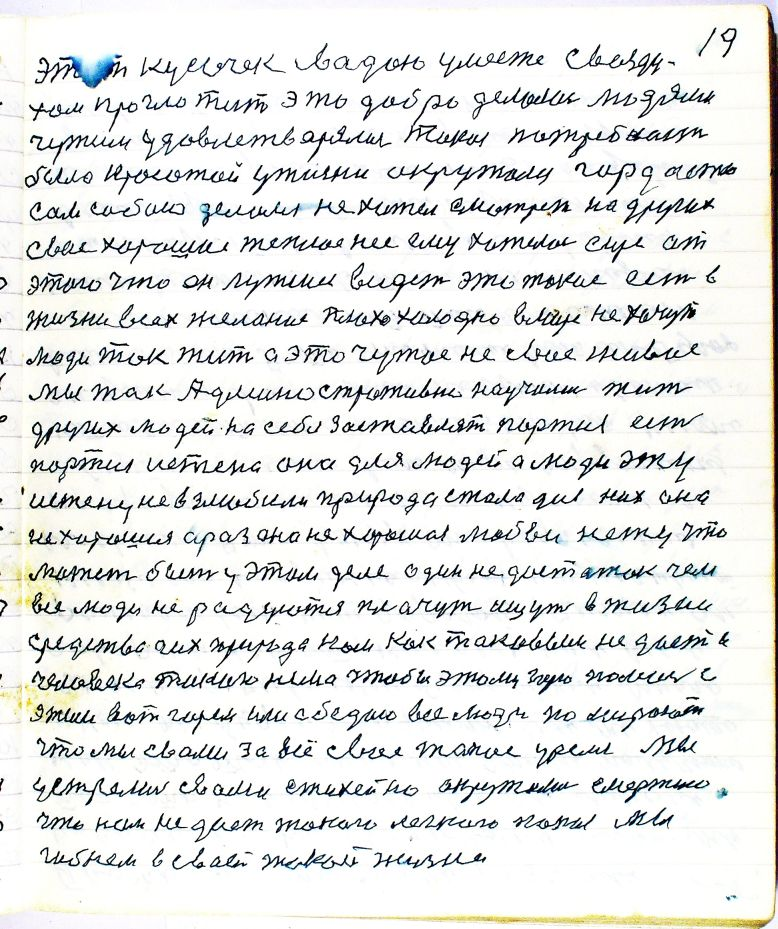 19
Этот кусочек вадою умести сваиду-
хом проглотит это добро делали людями
чужим удовлетварялис такая потребнасти
было красотой у жизни окружали гордастю
сам собою делаил не хотел смотреть на других
свае хорошие теплое нее ему хотелос сире от
этого что он лужеи видет это такое есть в
жизни всех желание плохо холодно вмире не хочут
люди так жит а это чужое не свае живое
мы так Административно научили жит
других людей на себя заставлят партия есть
партия истена она для людей а люди эту
истену невзлюбили природа стала для них она
не хорошия а раз она не хорошая любви нету что
может быть у этом деле один недостаток чем
все люди не радуются плачут ищут в жизни
средства а их природа нам как таковым не дает и
человека такого нема чтобы этому горю помочь с
этим вот горем или с бедою все люди по мирают
что мы свами за всё свае такое уреми Мы
устрели свами стихейно окружили смертю
что нам не дает такого легкого поля Мы
гибнем в сваей такой жизни